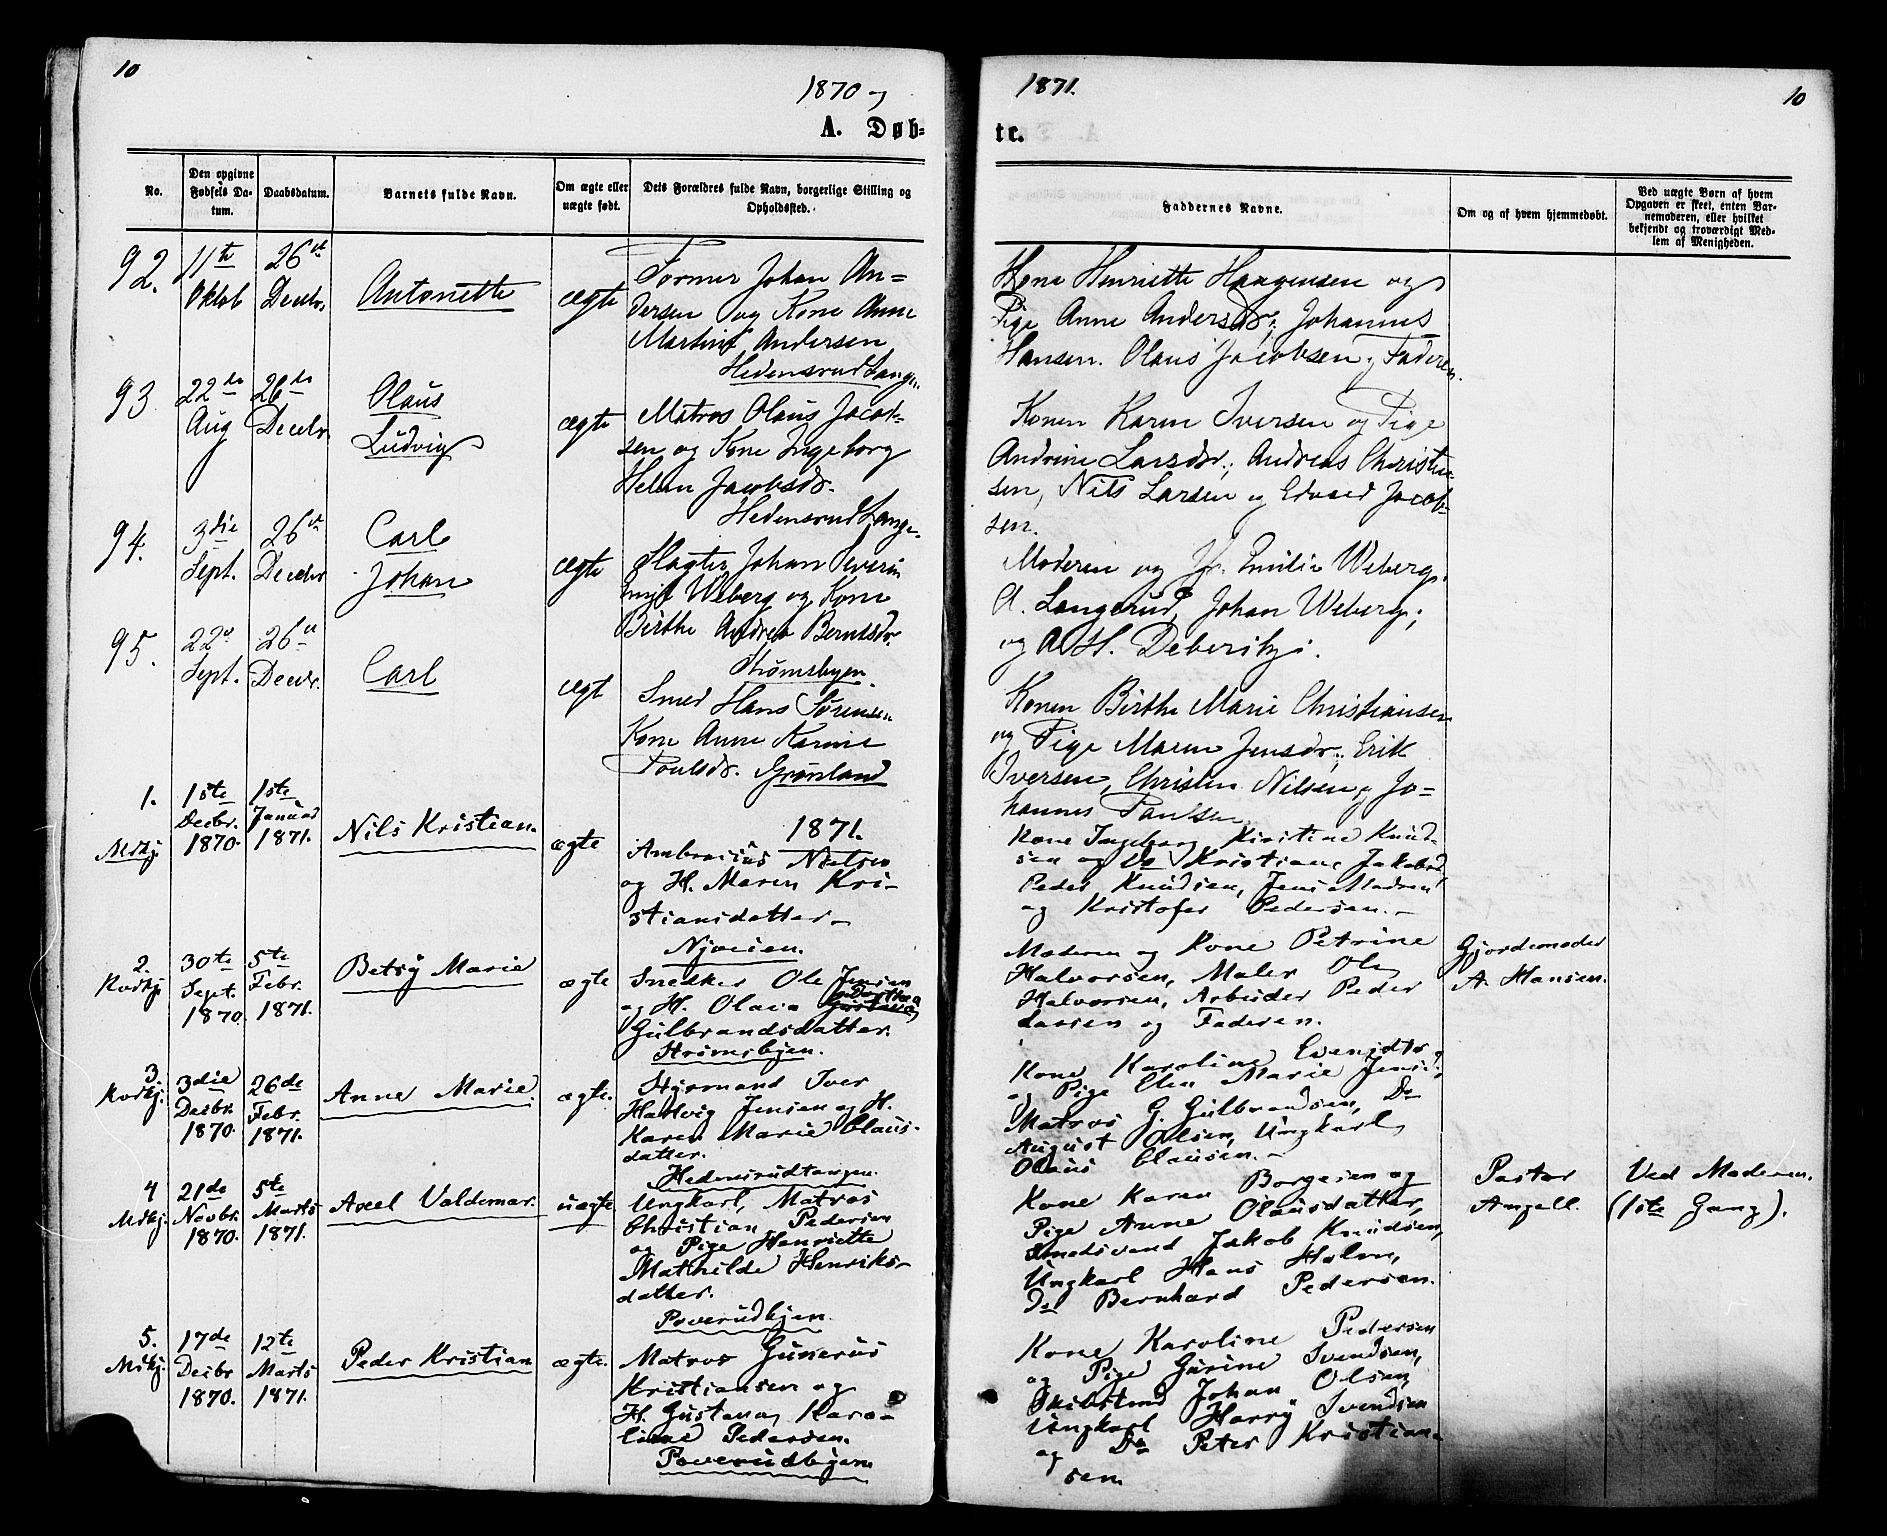 10
1870 og
A. Døb=
No.
Den opgivne Fødsels Da-
tum.
Daabsdatum.
Barnets fulde Navn.
Om ægte eller
uægte født.
Dets Forældres fulde Navn, borgerlige Stilling og
Opholdssted.
92.
11te
Oktob
26de
Decbr.
Antonette
ægte
Former Johan An=
dersen og Kone Anne
Martine Andersen
Hedensrudtangen
93
22de
Aug
26de
Decbr.
Olaus
Ludvig
ægte
Matros Olaus Jacob-
sen og Kone Ingeborg
Helen Jacobsdr.
Hedensrudtange
94.
3die
Sept.
26de
Decbr
Carl
Johan
ægte
Slagter Johan Severin
Weberg og Kone
Birthe Andrea Berntsdr.
Strømsbyen
95.
22de
Sept.
26de
Decbr.
Carl
ægt
Smed Hans Sørensen
Kone Anne Karine
Poulsdr. Grønland
1871.
1.
Mdkj.
1ste
Decbr.
1870.
1ste
Januar
1871.
Nils Kristian.
ægte
Ambrosius Nielsen
og H. Maren Kri-
stiansdatter
Nyveien.
2.
Kvdkj.
30te
Sept.
1870.
5te
Febr.
1871.
Betsy Marie
ægte
Snedker Ole Jensen
og H. Olava Dorthea
Gulbrandsdatter.
Strømsbyen.
3.
Kvdkj.
3die
Decbr.
1870.
26de
Febr.
1871.
Anne Marie.
ægte.
Styrmand Iver
Hartvig Jensen og H.
Karen Marie Claus-
datter.
Hedensrudtangen.
4
Mdkj.
21de
Novbr.
1870.
5te
Marts
1871.
Axel Valdemar.
uægte
Ungkarl, Matros
Christian Pedersen
og Pige Henriette
Mathilde Henriks-
datter.
Poverudbyen.
5.
Mdkj.
17de
Decbr
1870.
12te
Marts
1871.
Peder Kristian
ægte.
Matros Gunerus
Kristiansen og
H. Gustava Karo-
line Pedersen.
Poverudbyen
1871.
10
te.
Faddernes Navne.
Om og af hvem hjemmedøbt.
Ved uægte Børn af hvem
Opgaven er skeet, enten Bar-
nemoderen, eller hvilket
bekjendt og troværdigt Med-
lem af Menigheden.
Kone Henriette Haagensen og
Pige Anne Andersdr; Johannes
Hansen. Olaus Jacobsen, Faderen.
Konen Karen Iversen og Pige
Andrine Larsdr.; Andreas Christen-
sen, Nils Larsen og Edvard Jacob-
sen.
Moderen og Jfr. Emilie Weberg,
A. Langerud, Johan Weberg;
og A. H.
Konen Birthe Marie Christiansen
og Pige Maren Jensdr.; Erik
Iversen, Christen Nilsen, Jo=
hannes Paulsen
Kone Ingeborg Kirstine Knud-
sen og Do Kristiane Jakobsd,
Peder Knudsen, Jens Madsen
og Kristofer Pedersen.
Moderen og Kone Petrine
Halvorsen, Maler Ole
Halvorsen, Arbeider Peder
Larsen og Faderen.
Gjordemoder
A. Hansen.
Kone Karoline Evensdtr
og Pige Elen Marie Jensen,
Matros G. Gulbrandsen, Do
August Olsen, Ungkarl
Olaus Clausen.
Kone Karen Borgesen og
Pige Anne Olausdatter,
Smedsvend Jakob Knudsen,
Ungkarl Hans Holm,
Do Bernhard Pedersen.
Pastor
Angell.
Ved Moderen.
(1ste Gang).
Kone Karoline Pedersen
og Pige Gurine Svendsen,
Skibstmd Johan Olsen,
Ungkarl Harry Svendsen
og Do Peter Kristian-
sen